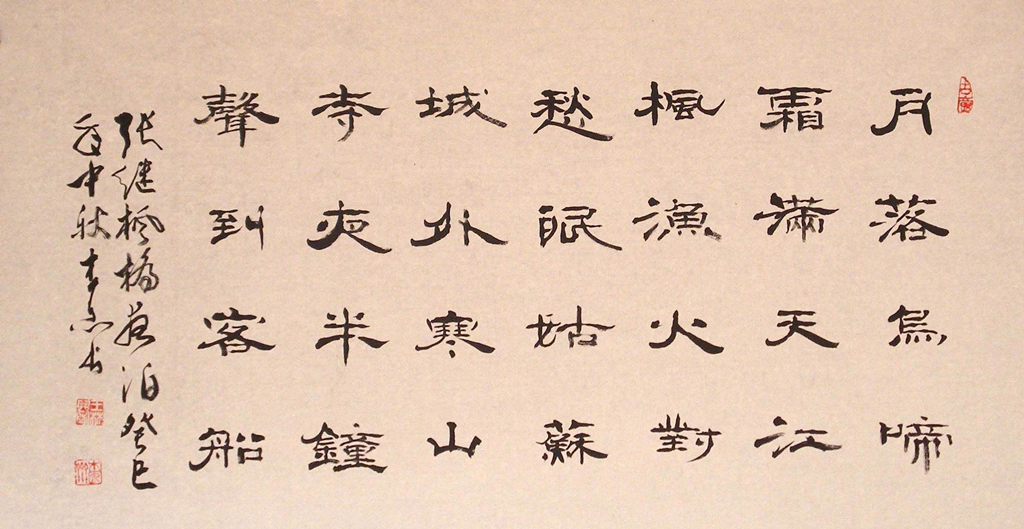 月落烏啼
霜滿天江
楓漁火對
愁眠姑蘇
城外寒山
寺夜半鐘
聲到客船
张继枫橋夜泊癸巳
中秋李
书